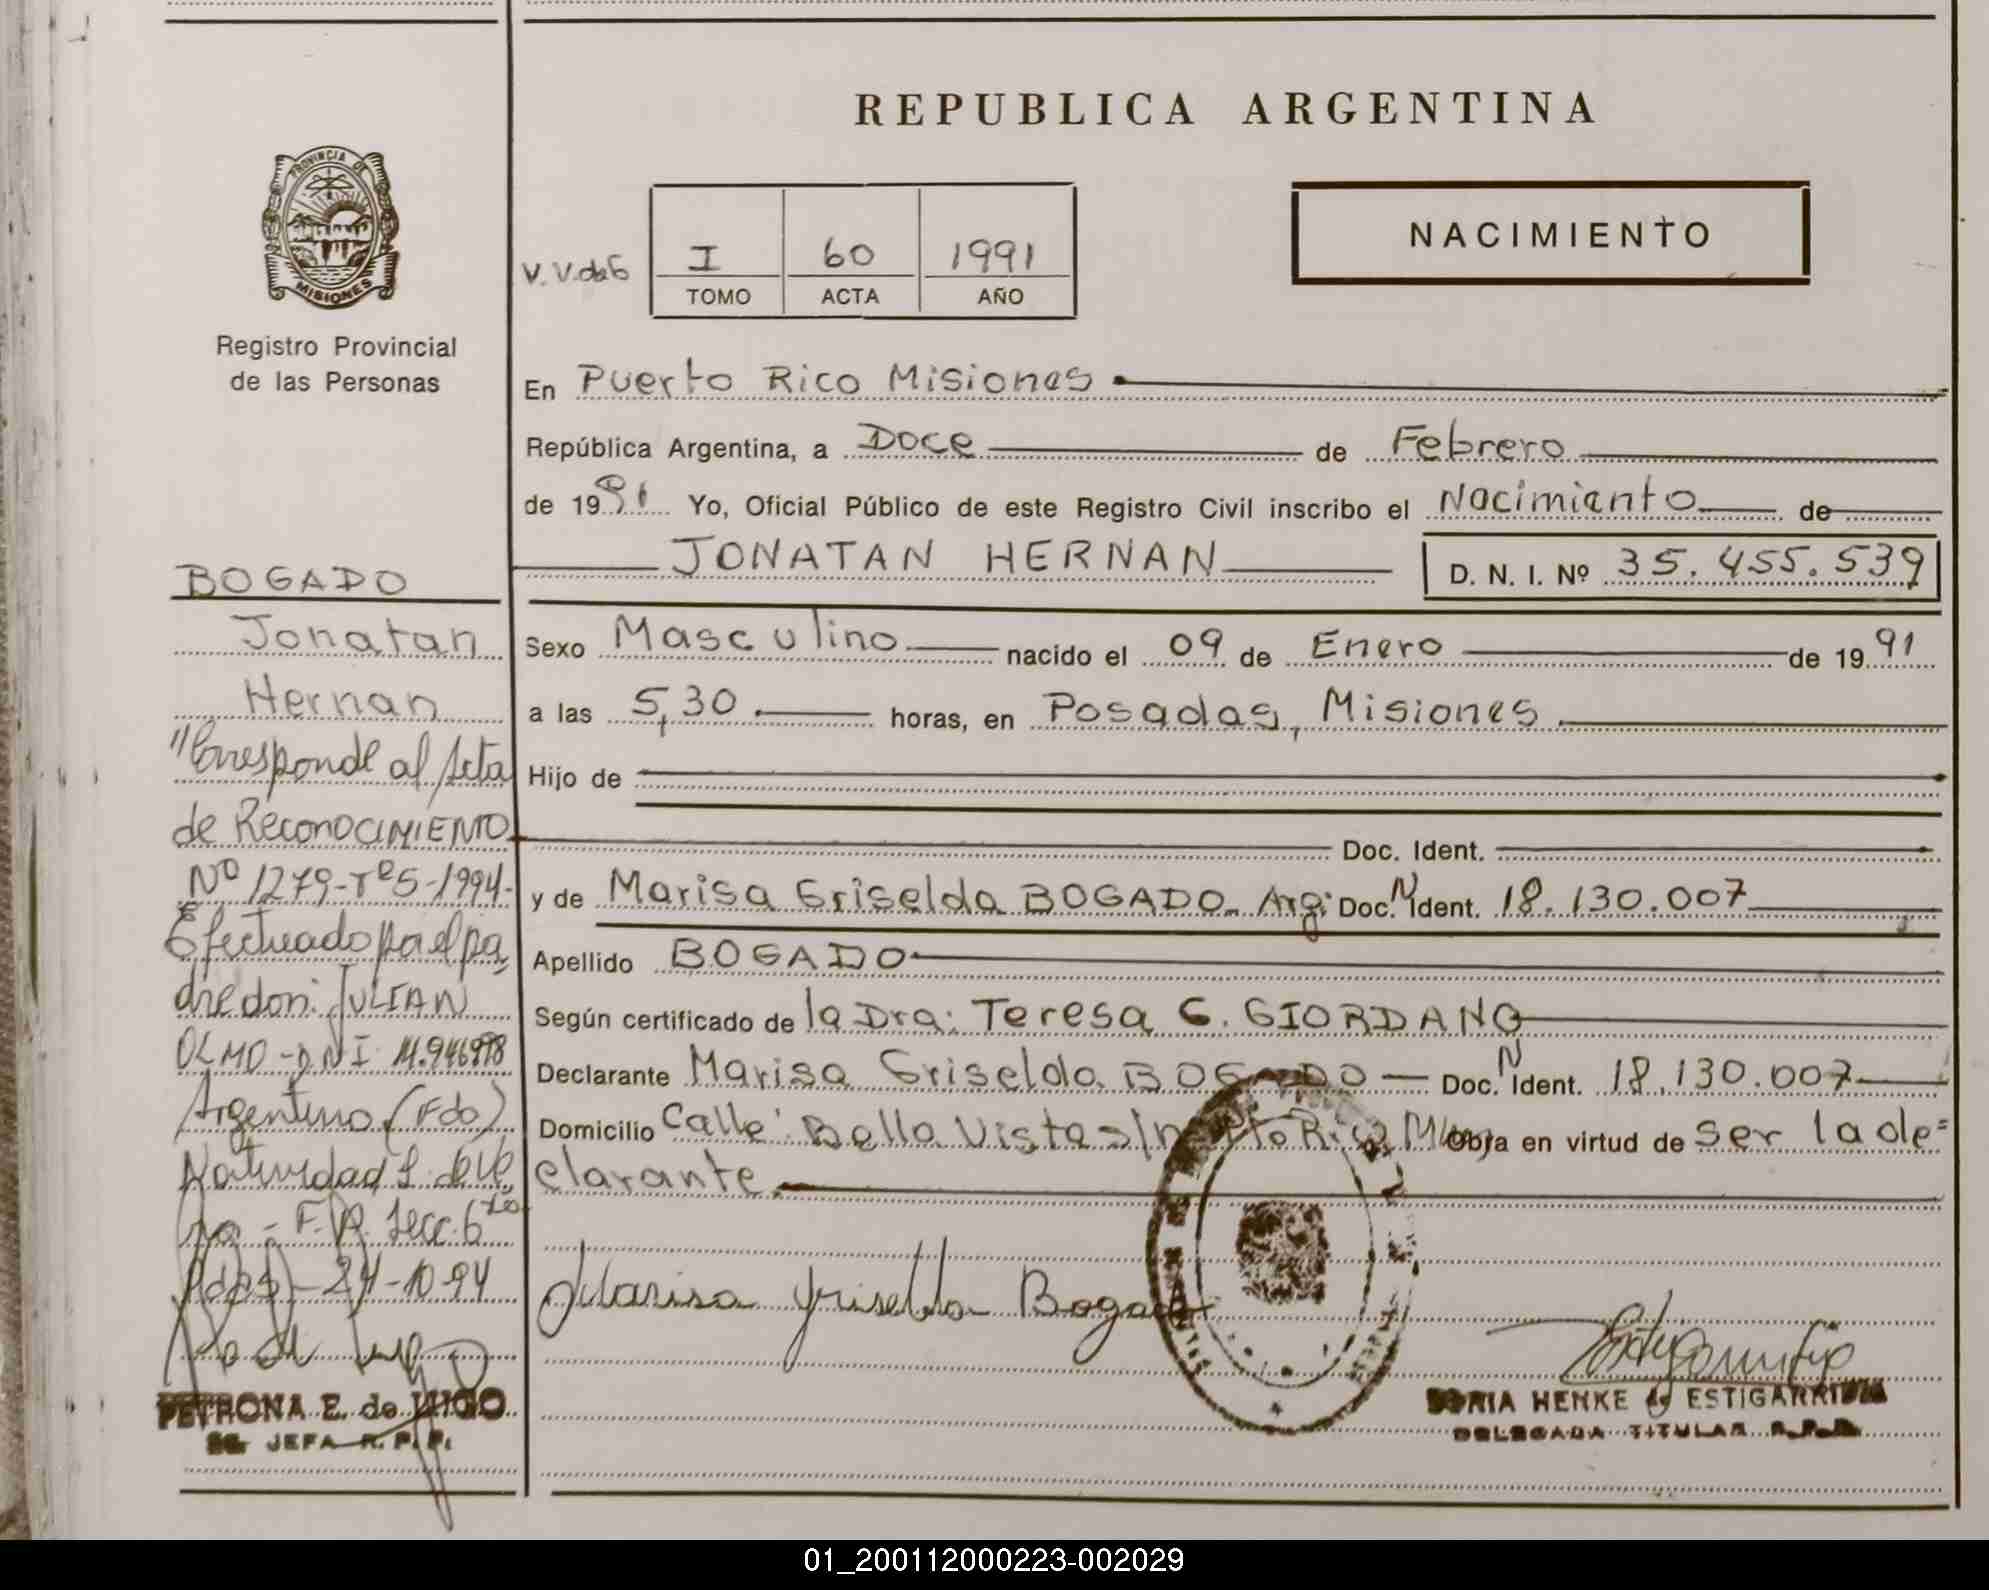 REPUBLICA ARGENTINA
PROVINCIA DE
MISIONES
Registro Provincial
de las Personas
I 60 1991
TOMO ACTA AÑO
NACIMIENTO
En Puerto Rico Misiones
República Argentina, a Doce de Febrero
de 1991 Yo, Oficial Público de este Registro Civil inscribo el Nacimiento de
JONATAN HERNAN D. N. I. Nº 35.455.539
Sexo Masculino nacido el 09 de Enero de 1991
a las 5,30 horas, en Posadas, Misiones
Hijo de
Doc. Ident.
y de Marisa Griselda BOGADO. Arg: Doc. N Ident. 18.130.007
Apellido BOGADO
Según certificado de la Dra: Teresa G. GIORDANO
Declarante Marisa Griselda BOGADO Doc. N Ident. 18.130.007
Domicilio Calle: Bella Vista s/n Pto Rico Obra en virtud de ser la de=
clarante.
Marisa Griselda Bogado
SONIA HENKE de ESTIGARRIBIA
DELEGADA TITULAR R.P.P.
BOGADO
Jonatan
Hernan
"Corresponde al Acta
de RECONOCIMIENTO
Nº 1279-Tº5-1994-
Efectuado por el pa
dre don: JULIAN
OLMO - D.N.I. 14.946998
Argentino (Fdo)
Natividad S. de
Secc. 6
24-10-94
PETRONA E. de LUGO
JEFA R. P. P.
01_200112000223-002029